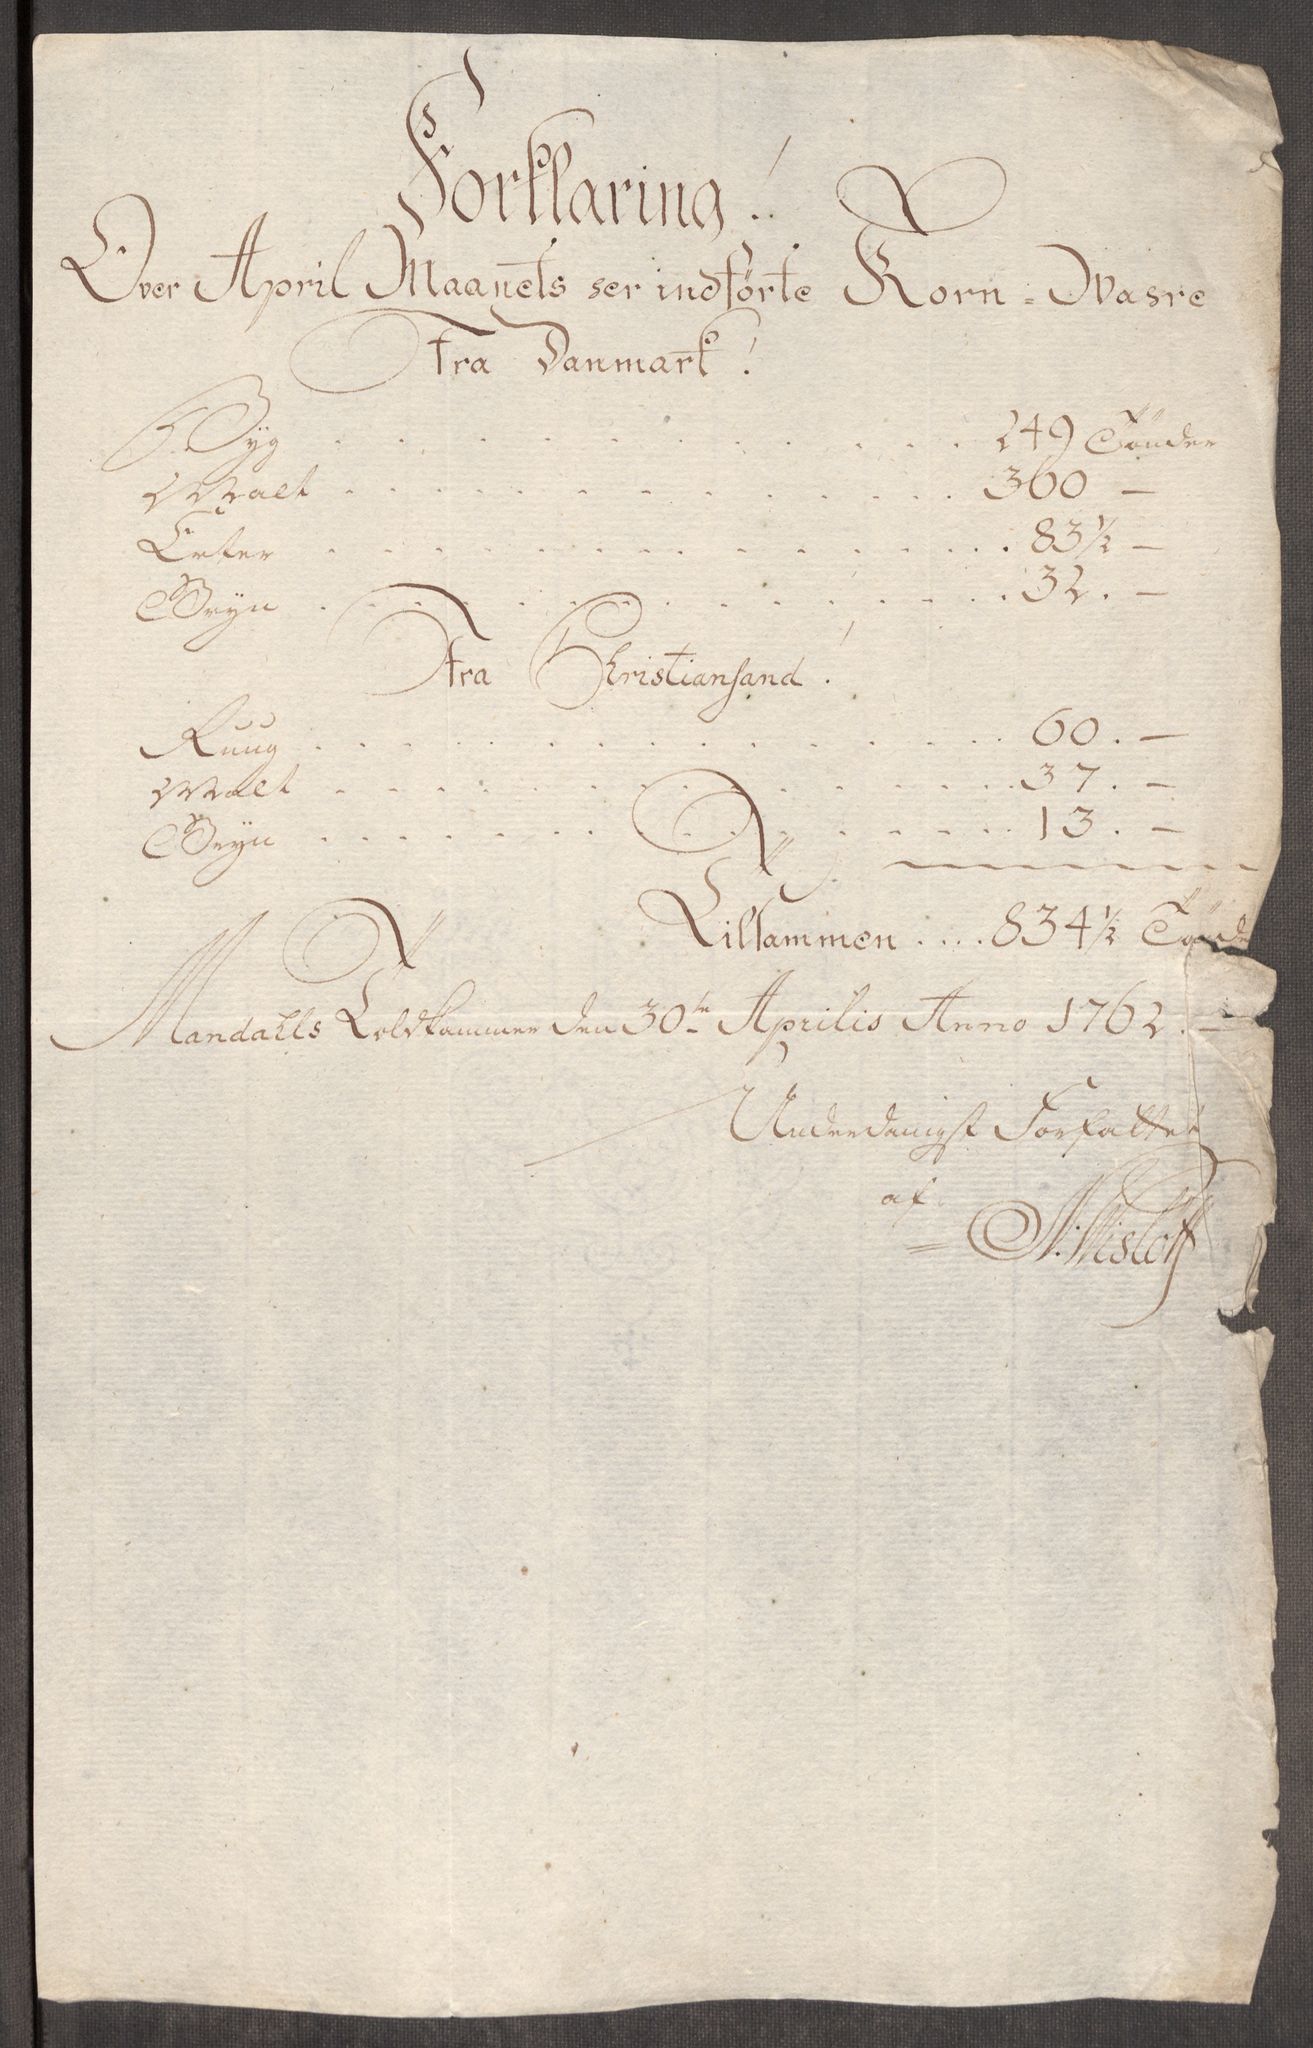 Forklaring!
Over April Maanets her indførte Korn-Vasre
Fra Danmark!
Byg . . . . . . . . . . . . . . 249 Tönder
Malt . . . . . . . . . . . . . . 360 —
Erter . . . . . . . . . . . . . . 83½ —
Gryn . . . . . . . . . . . . . . 32. —
Fra Christiansand!
Ruug . . . . . . . . . . . . . . 60. —
Malt . . . . . . . . . . . . . . 37. —
Gryn . . . . . . . . . . . . . . 13. —
Tilsammen .... 834½ Tönde
Mandahls Toldkammer den 30te Aprilis Anno 1762. —
Underdanigst Forfattet
af
N: Wisløff